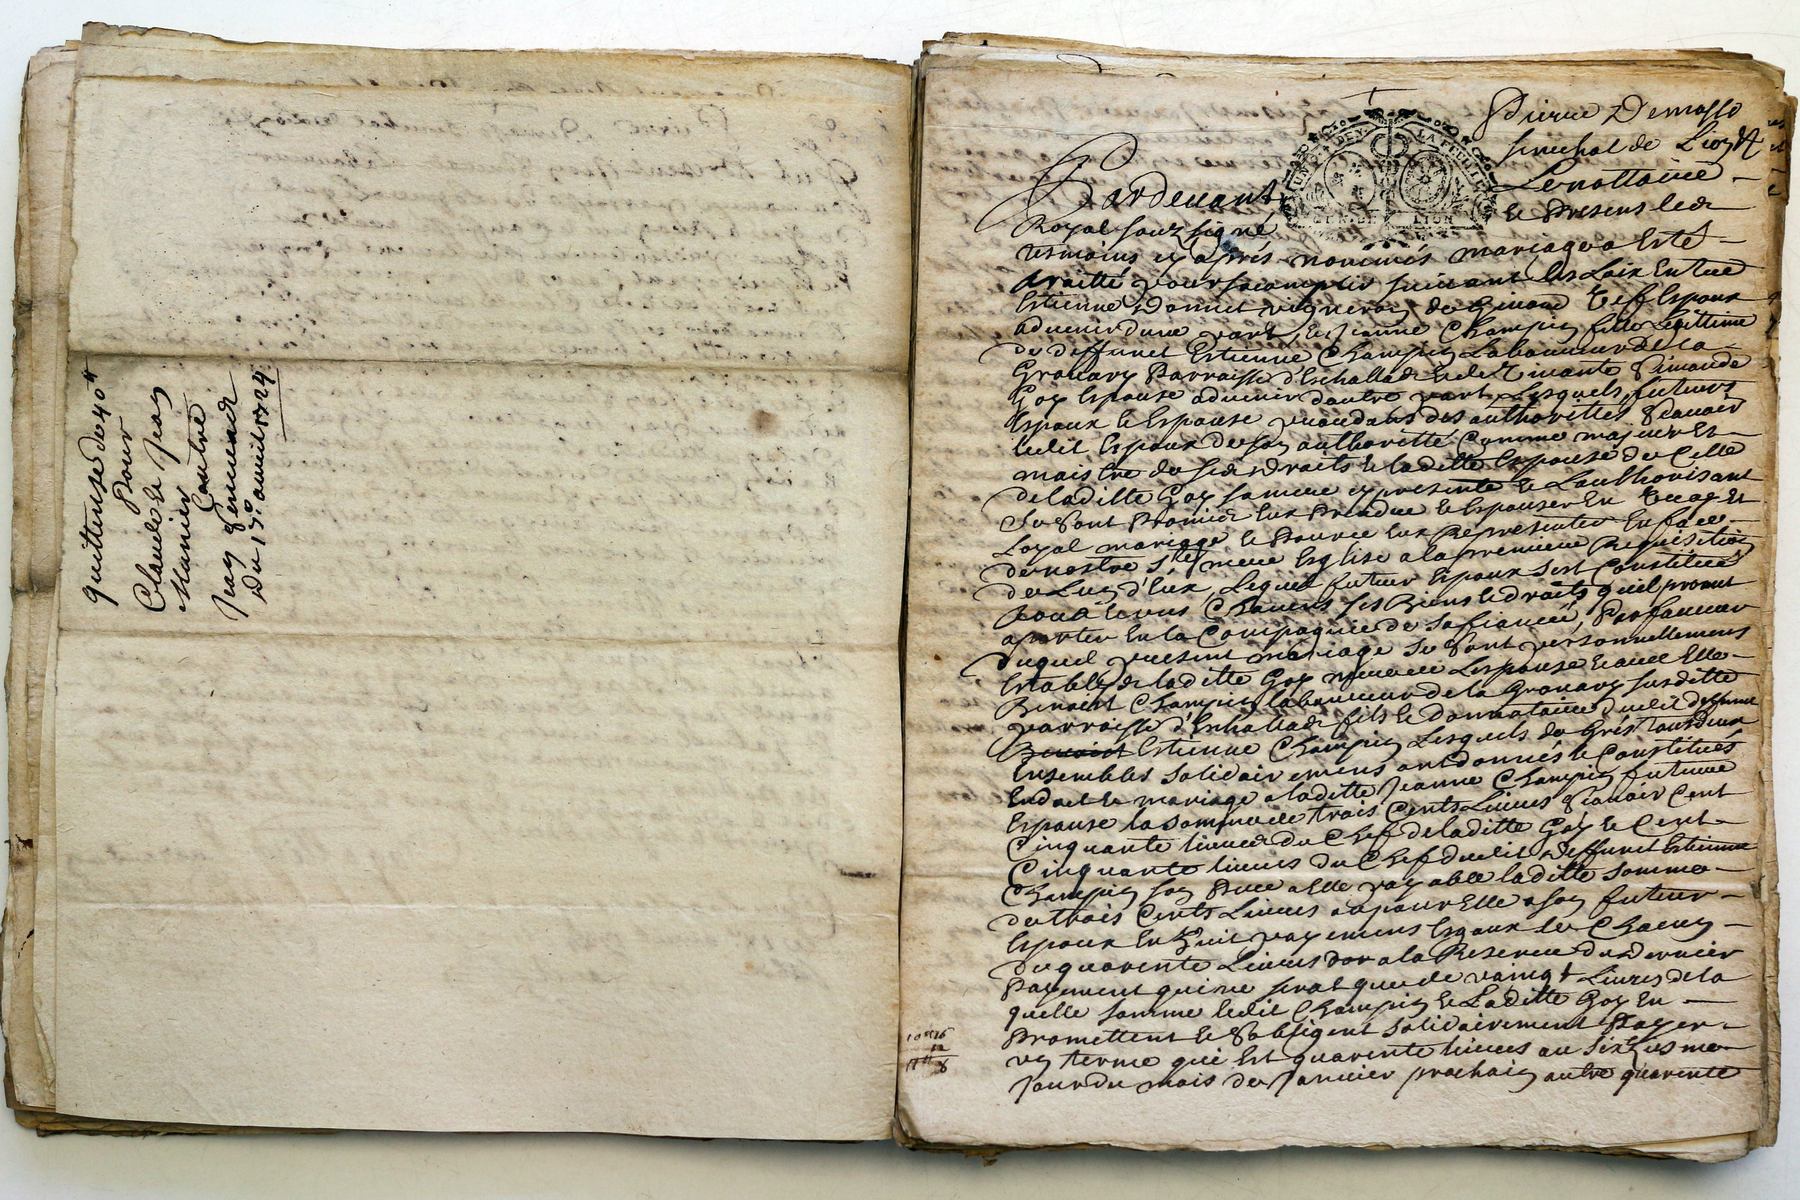 quittense de 40 ₶
pour
Claude et Jean
Manier
Contre
Jean
Du 17e. avril 1724
Pierre Demasso
senechal de Lion &
Pardevant Le nottaire
Royal souz signé et presens les
tesmoins cy après nommés mariage a esté
traitté pour sacomplir suivant les Loix Entre
Estienne Donnet vigneron de Espoux
advenir dune part, et Jeanne Champin fille Legittime
de deffunct Estienne Champin Laboureur de la
Granary Parroisse d'Eschallas et de vivante Simande
Goy Espouse advenir dautre part Lesquels futurs
Espoux et Espouse procedans des authorittés sçavoir
Ledit Espoux de son authoritté comme majeur et
maistre de ses droits et laditte Espouse de celle
de laditte Goy sa mere cy presente et Lauthorisant
se sont promis eux prendre et Espouser en vray et
Loyal mariage et pource eux Representer en face
de nostre ste mere Esglise a la premiere Requisition
de Lun d'Eux, Lequel futur Espoux sest Constitué
tous et uns Chacuns ses Biens et droits quil promt
aporter En la Compagnie de sa fiancée, Par faveur
duquel present mariage se sont personnellement
Establys laditte Goy mere de Lespouse et avec Elle
Benoist Champin laboureur de la Granary susditte
parroisse d'Eschallas fils et donnataire dudit deffunct
Benoist Estienne Champin Lesquels de Grés tous deux
Ensembles solidairemens ont donnés et Constitués
En dot et mariage a laditte Jeanne Champin future
Espouse la somme de trois Cents Livres sçavoir Cent
Cinquante livres du Chef de laditte Goy et Cent
Cinquante livres du Chef dudit deffunct Estienne
Champin son Pere a Elle payable laditte somme
de trois Cents Livres ou pour Elle a son futur
Espoux En huit payemens Esgaux de Chacun
de quarente Livres a la Reserve du dernier
Payement qui ne serat que de vaingt Livres de la
quelle somme ledit Champin et Laditte Goy En
Promettent et sobligent solidairement Payer
un terme qui Est quarente livres au sixiesme
jour du mois de Janvier prochain autre quarente